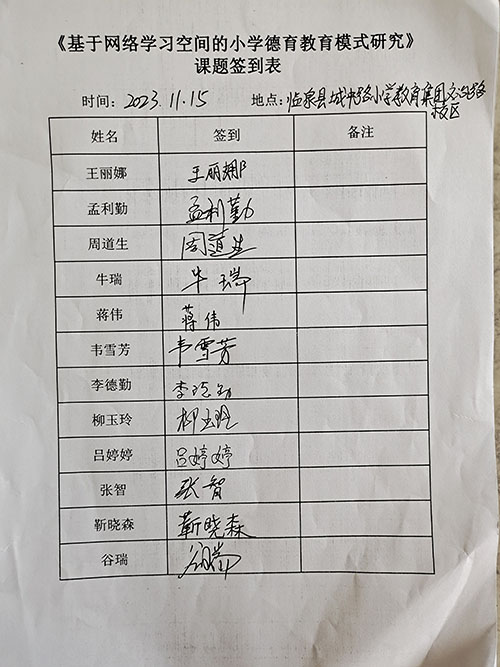 《基于网络学习空间的小学德育教育模式研究》
课题签到表
时间：2023.11.15 地点：临泉县城中路小学教育集团交通路
校区
姓名 签到 备注
王丽娜 王丽娜
孟利勤 孟利勤
周道生 周道生
牛瑞 牛瑞
蒋伟 蒋伟
韦雪芳 韦雪芳
李德勤 李德勤
柳玉玲 柳玉玲
吕婷婷 吕婷婷
张智 张智
靳晓森 靳晓森
谷瑞 谷瑞